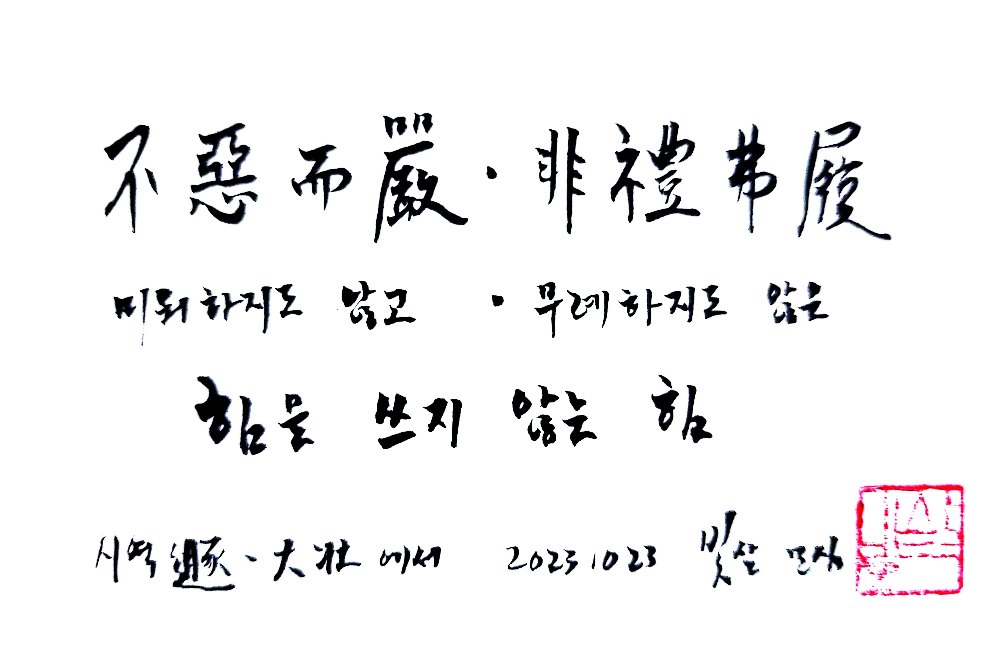 不惡而嚴 · 非禮弗履
미워하지도 않고 · 무례하지도 않은
힘을 쓰지 않는 힘
시역 遯 · 大壯 에서 2023 10 23 빛살 모심